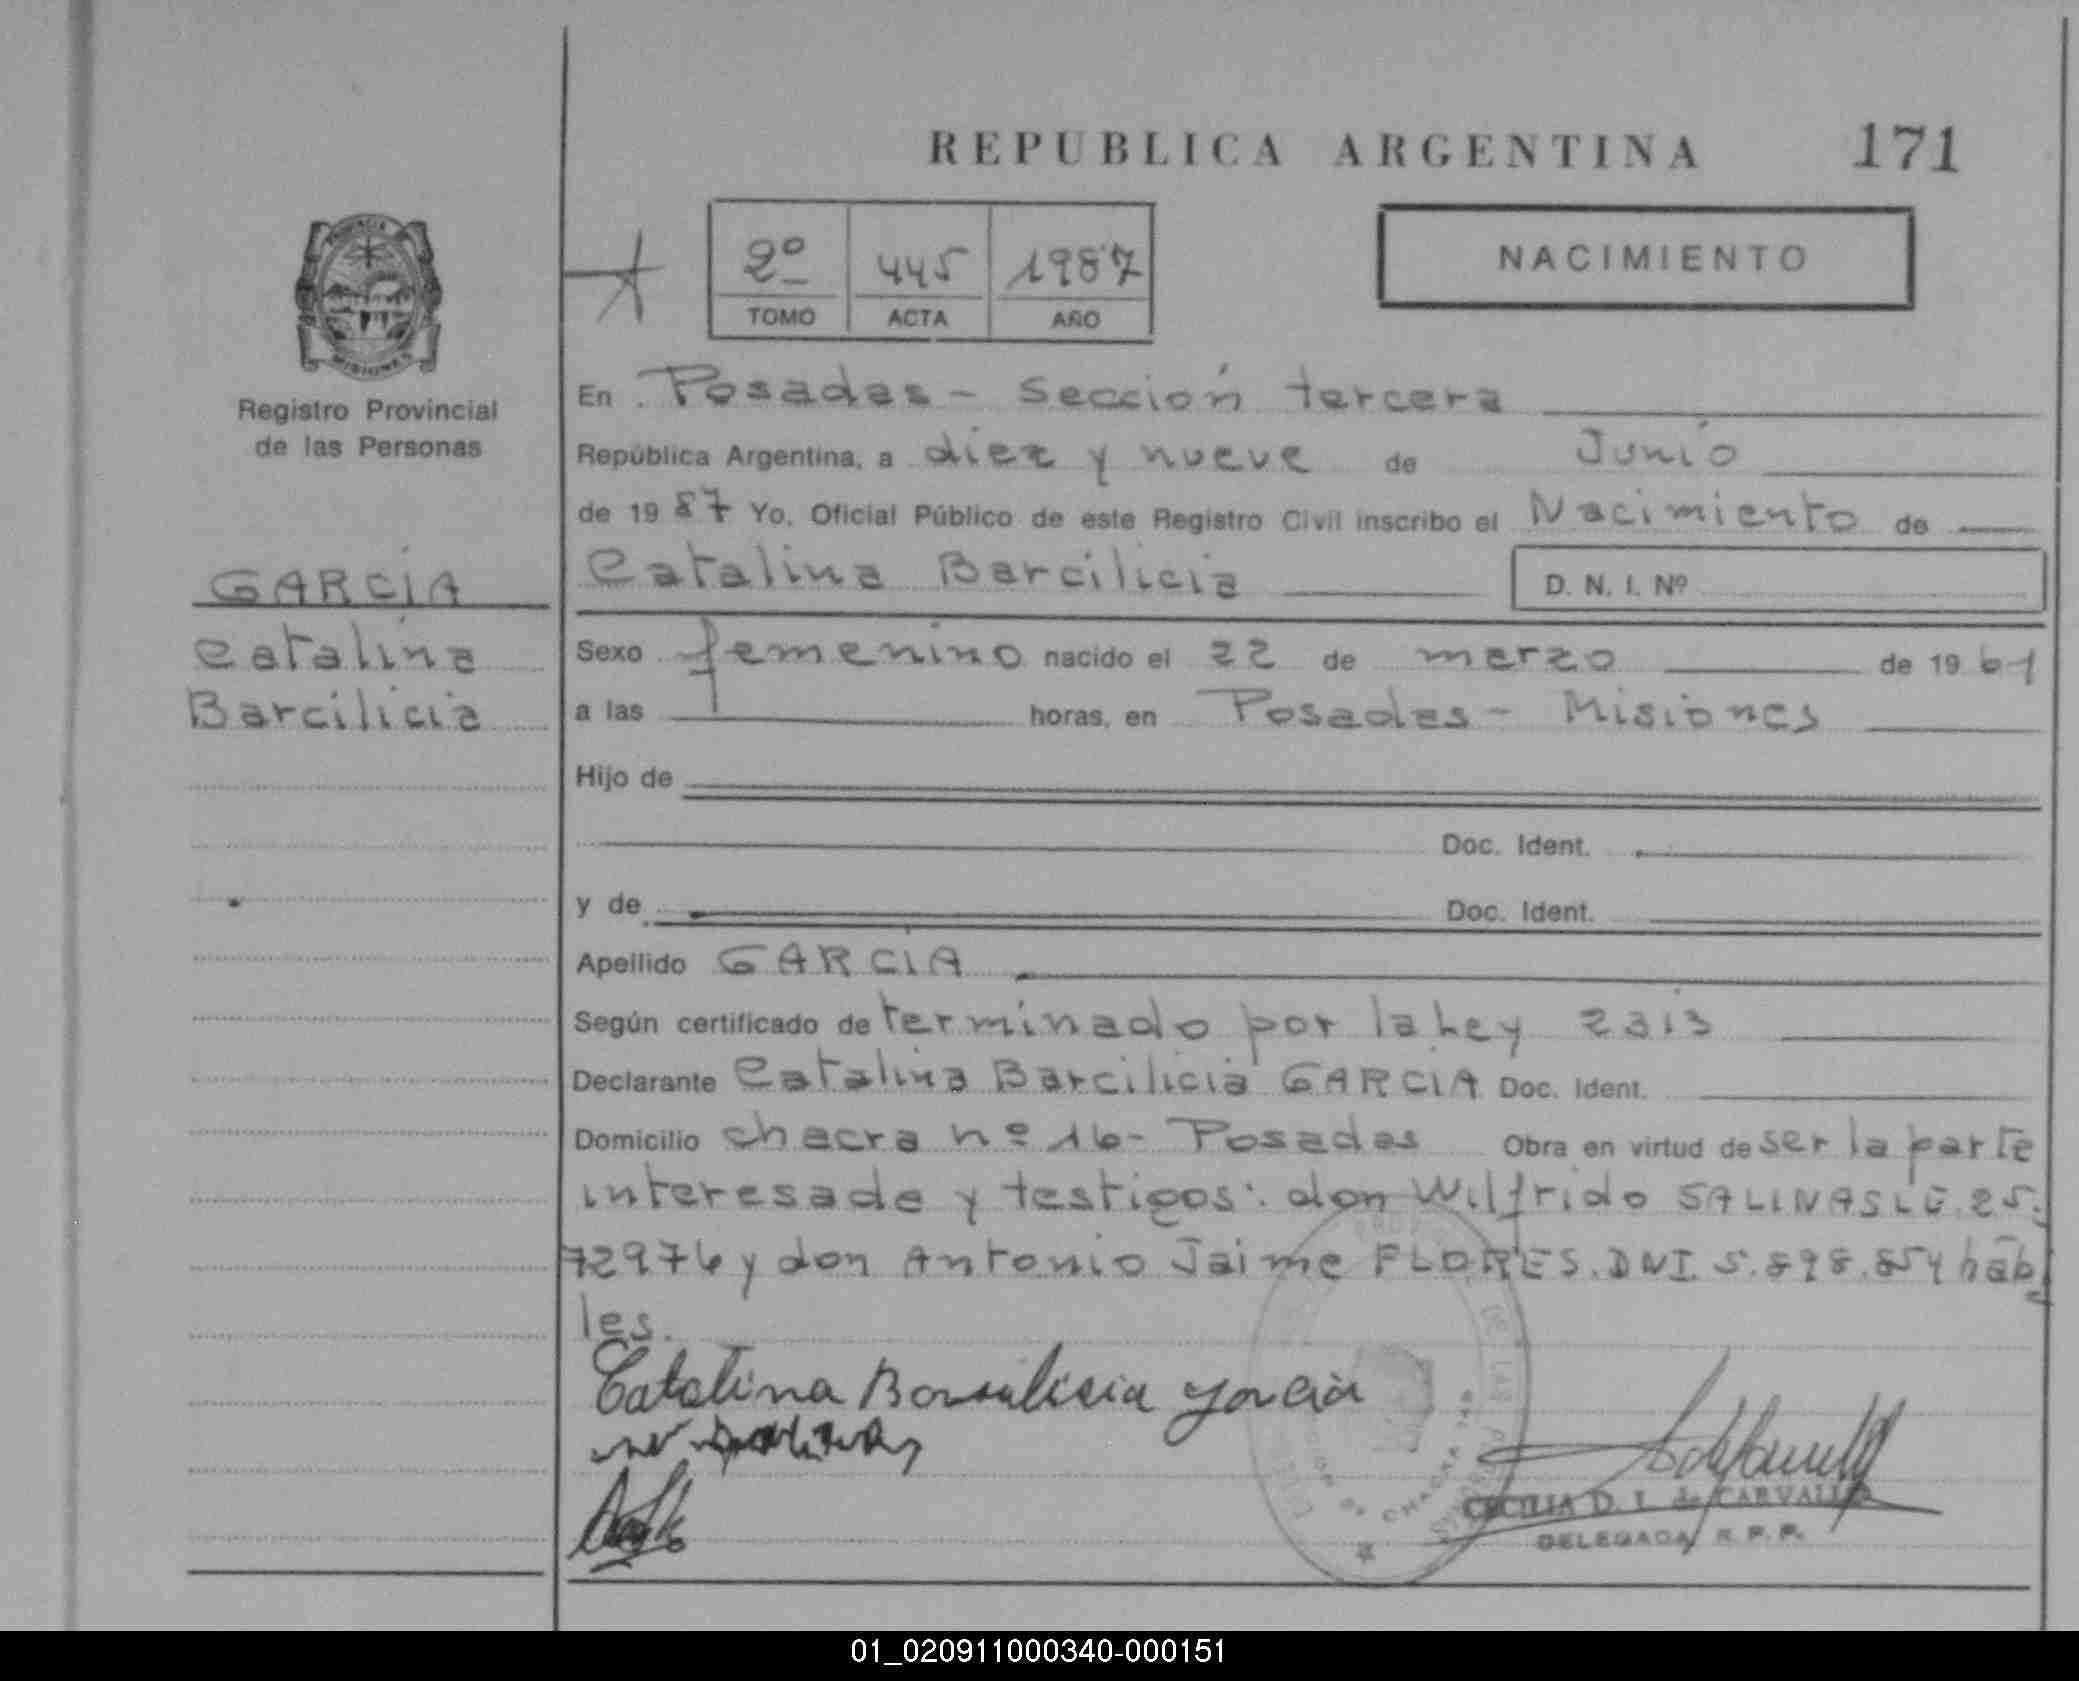 REPUBLICA ARGENTINA 171
2º 445 1987
TOMO ACTA AÑO
NACIMIENTO
PROVINCIA
MISIONES
Registro Provincial
de las Personas
GARCÍA
Catalina
Barcilicia
En Posadas - Sección tercera
República Argentina, a diez y nueve de Junio
de 1987 Yo, Oficial Público de este Registro Civil inscribo el Nacimiento de
Catalina Barcilicia D. N. I. Nº
Sexo femenino nacido el 22 de marzo de 1961
a las horas, en Posadas - Misiones
Hijo de
Doc. Ident.
y de Doc. Ident.
Apellido GARCÍA
Según certificado de terminado por la Ley 2313
Declarante Catalina Barcilicia GARCIA Doc. Ident.
Domicilio chacra nº 16- Posadas Obra en virtud de ser la parte
interesada y testigos: don Wilfrido SALINAS LE. 25.
72976 y don Antonio Jaime FLORES. DNI. 5.898.854 hábi
les.
Catalina Barsilisia garcia
CECILIA D. I. de CARVALLO
DELEGADA R. P. P.
DE LAS PERSONAS
CHACRA
01_020911000340-000151